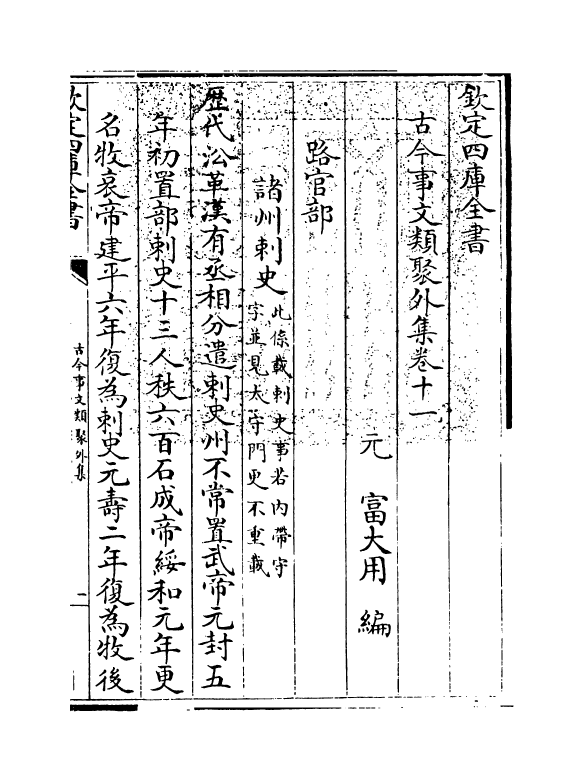 欽定四庫全書
古今事文類聚外集卷十一
元　富大用　編
路官部
諸州刺史此條載刺史事若內帶守
字並見太守門更不重載
歷代沿革漢有丞相分遣刺史州不常置武帝元封五
年初置部刺史十三人秩六百石成帝綏和元年更
名牧哀帝建平六年復為刺史元壽二年復為牧後
欽定四庫全書
古今事文類聚外集